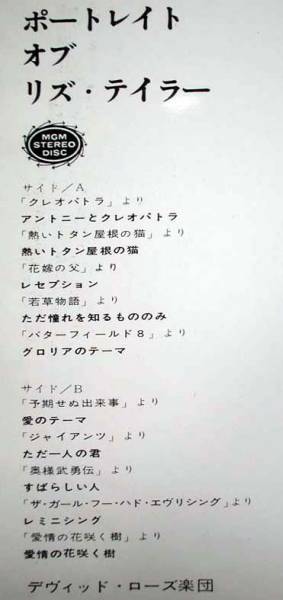 ポートレイト
オブ
リズ・テイラー
MGM
STEREO
DISC
サイド／A
「クレオパトラ」より
アントニーとクレオパトラ
「熱いトタン屋根の猫」より
熱いトタン屋根の猫
「花嫁の父」より
レセプション
「若草物語」より
ただ憧れを知るもののみ
「バターフィールド8」より
グロリアのテーマ
サイド／B
「予期せぬ出来事」より
愛のテーマ
「ジャイアンツ」より
ただ一人の君
「奥様武勇伝」より
すばらしい人
「ザ・ガール・フー・ハド・エヴリシング」より
レミニシング
「愛情の花咲く樹」より
愛情の花咲く樹
デヴィッド・ローズ楽団